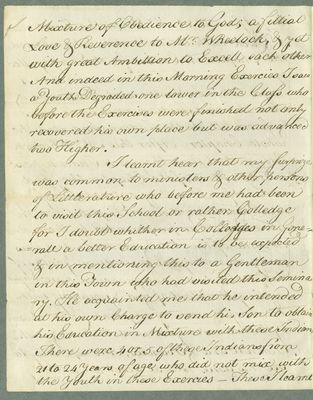 Mixture of Obedience to God; a filial
Love & Reverence to Mr. Wheelock, & yet
with great Ambition to Excell each other
And indeed in this Morning Exercies I saw
a Youth Degraded one lower in the Class who
before the Exercises were finished not only
recovered his own place but was advanced
two Higher.
I learnt hear that my surprize
was common to ministers & other persons
of Litterature who before me had been
to visit this School or rather Colledge
for I doubt whither in Colledges in gene-
rall a better Education is to be expected
& in mentioning this to a Gentleman
in this Town who had visited this Semina-
ry. He acquainted me that he intended
at his own Charge to send his Son to obtain
his Education in Mixture with these Indians
There were 4 or 5 of these Indians from
21 to 24 years of age, who did not mix with
the Youth in these Exercises — These I learnt